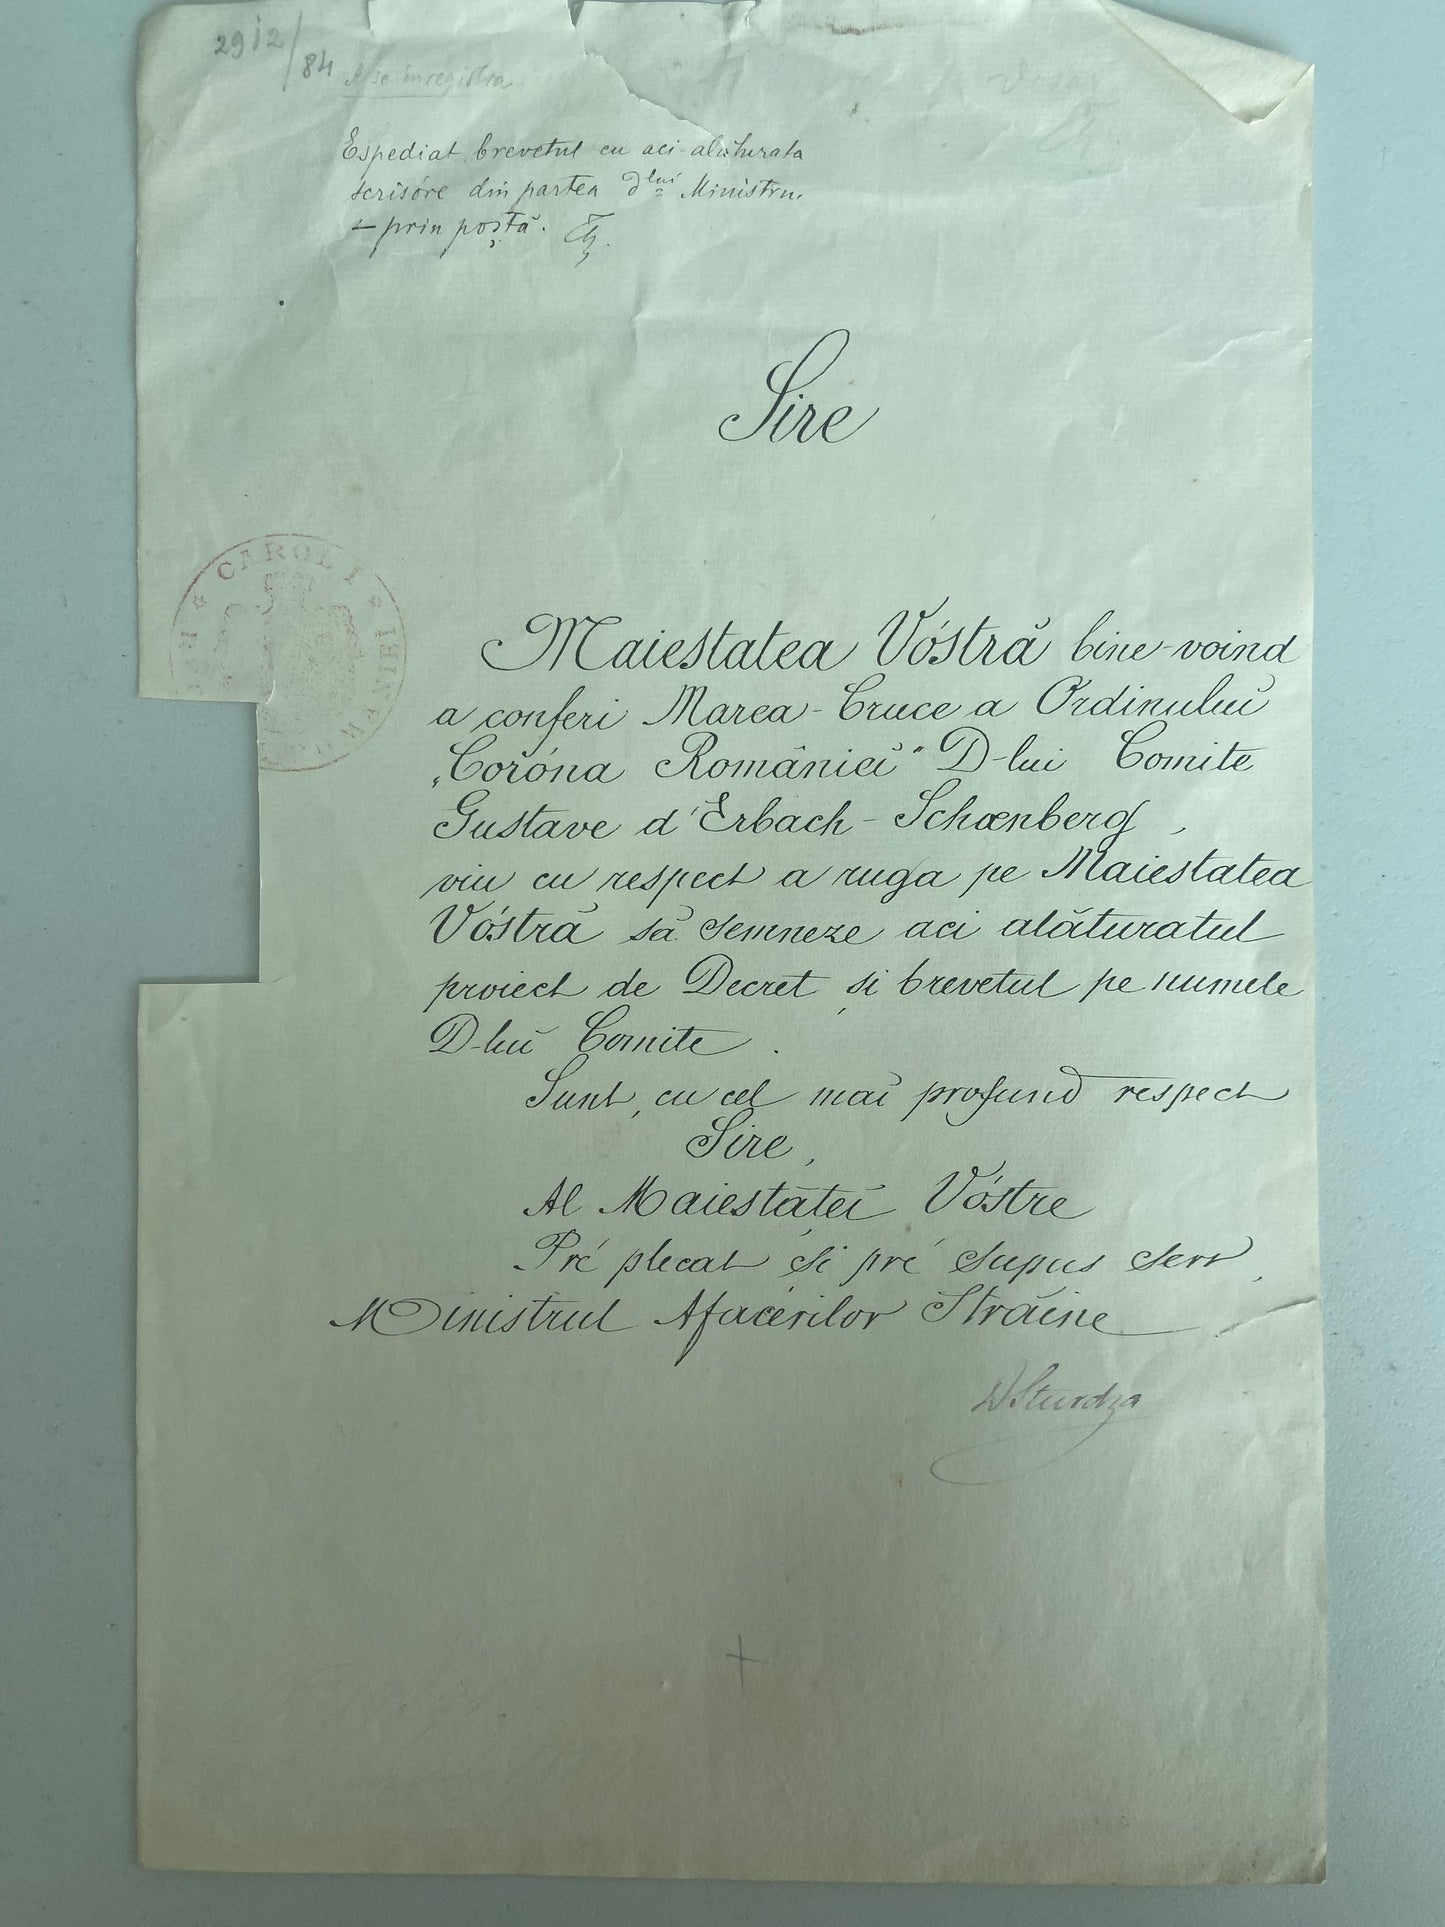 2912/84
A se inregistra
Espediat brevetul cu aci-alăturata
scrisóre din partea d-lui Ministru.
– prin poștă.
Sire
CAROL I
Maiestatea Vóstră bine-voind
a conferi Marea-Cruce a Ordinuluĭ
„Coróna Românieĭ” D-lui Comite
Gustave d'Erbach-Schœnberg,
viu cu respect a ruga pe Maiestatea
Vóstră să semneze aci alăturatul
proiect de Decret și brevetul pe numele
D-luĭ Comite.
Sunt, cu cel maĭ profund respect
Sire,
Al Maiestățeĭ Vóstre
Pré plecat și pré supus serv,
Ministrul Afacerilor Străine
DSturdza